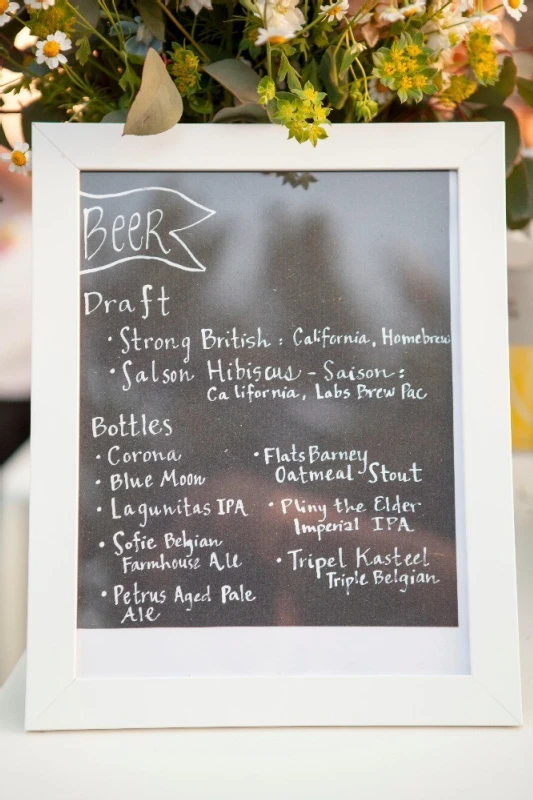 Beer
Draft
• Strong British : California, Homebrew
• Salson Hibiscus - Saison :
California, Labs Brew Pac
Bottles
• Corona
• Blue Moon
• Lagunitas IPA
• Sofie Belgian
Farmhouse Ale
• Petrus Aged Pale
Ale
• Flats Barney
Oatmeal Stout
• Pliny the Elder
Imperial IPA
• Tripel Kasteel
Triple Belgian